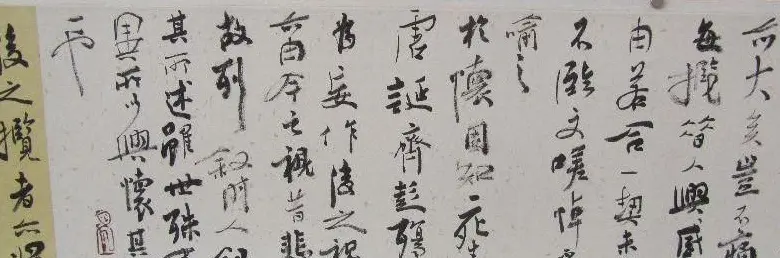 亦大矣豈不痛
每攬昔人興感
由若合一契未
不臨文嗟悼
喻之
於懷固知一死生
虛誕齊彭殤
為妄作後之視
亦由今之視昔悲
故列叙時人錄
其所述雖世殊
異所以興懷其
一也
後之攬者亦將